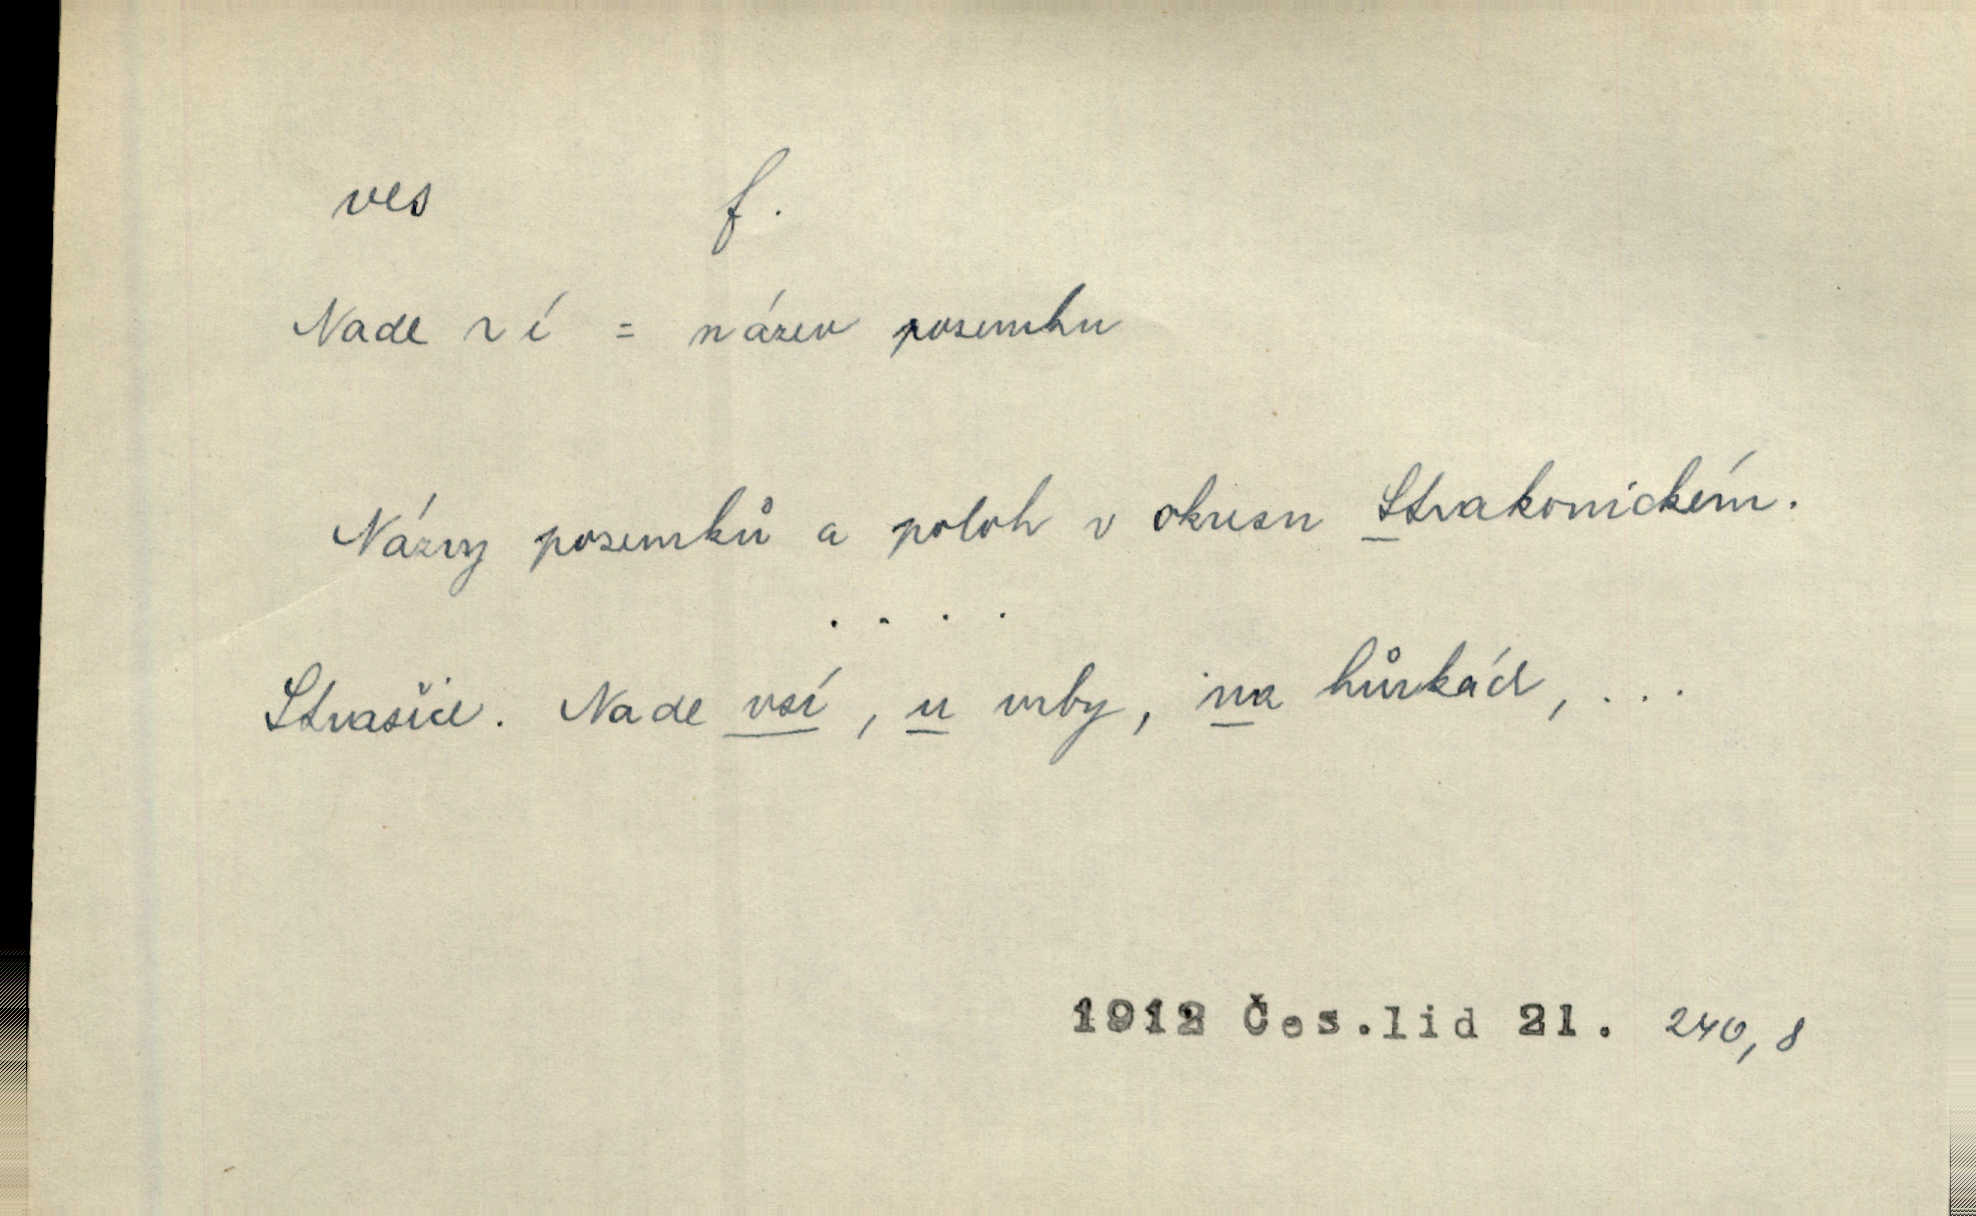 ves f.
Nade ~ í = název pozemku
Názvy pozemků a poloh v okresu Strakonickém.
. . . .
Strašice. Nade vsí, u vrby, na hůrkách, ...
1912 Čes.lid 21. 240, 8